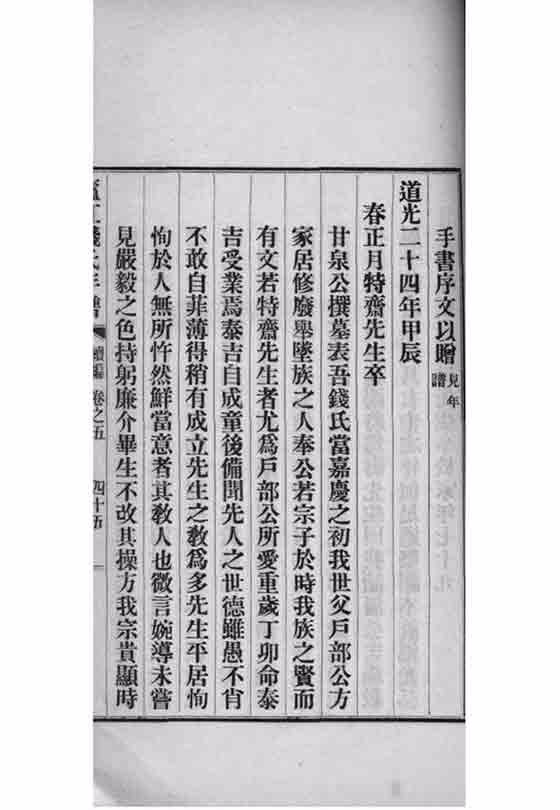 手書序文以贈見年譜
道光二十四年甲辰
春正月特齋先生卒
甘泉公撰墓表吾錢氏當嘉慶之初我世父戶部公方
家居修廢舉墜族之人奉公若宗子於時我族之賢而
有文若特齋先生者尤爲戶部公所愛重歲丁卯命泰
吉受業焉泰吉自成童後備聞先人之世德雖愚不肖
不敢自菲薄得稍有成立先生之敎爲多先生平居恂
恂於人無所忤然鮮當意者其敎人也微言婉導未嘗
見嚴毅之色持躬廉介畢生不改其操方我宗貴顯時
錢氏年譜 續編 卷之五 四十五